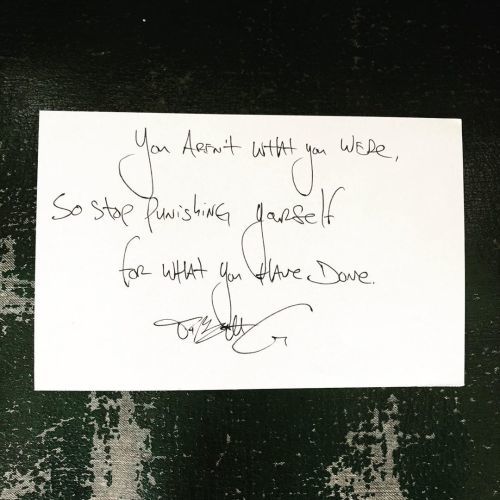 You Aren't what you were,
So stop punishing yourself
for what you Have Done.